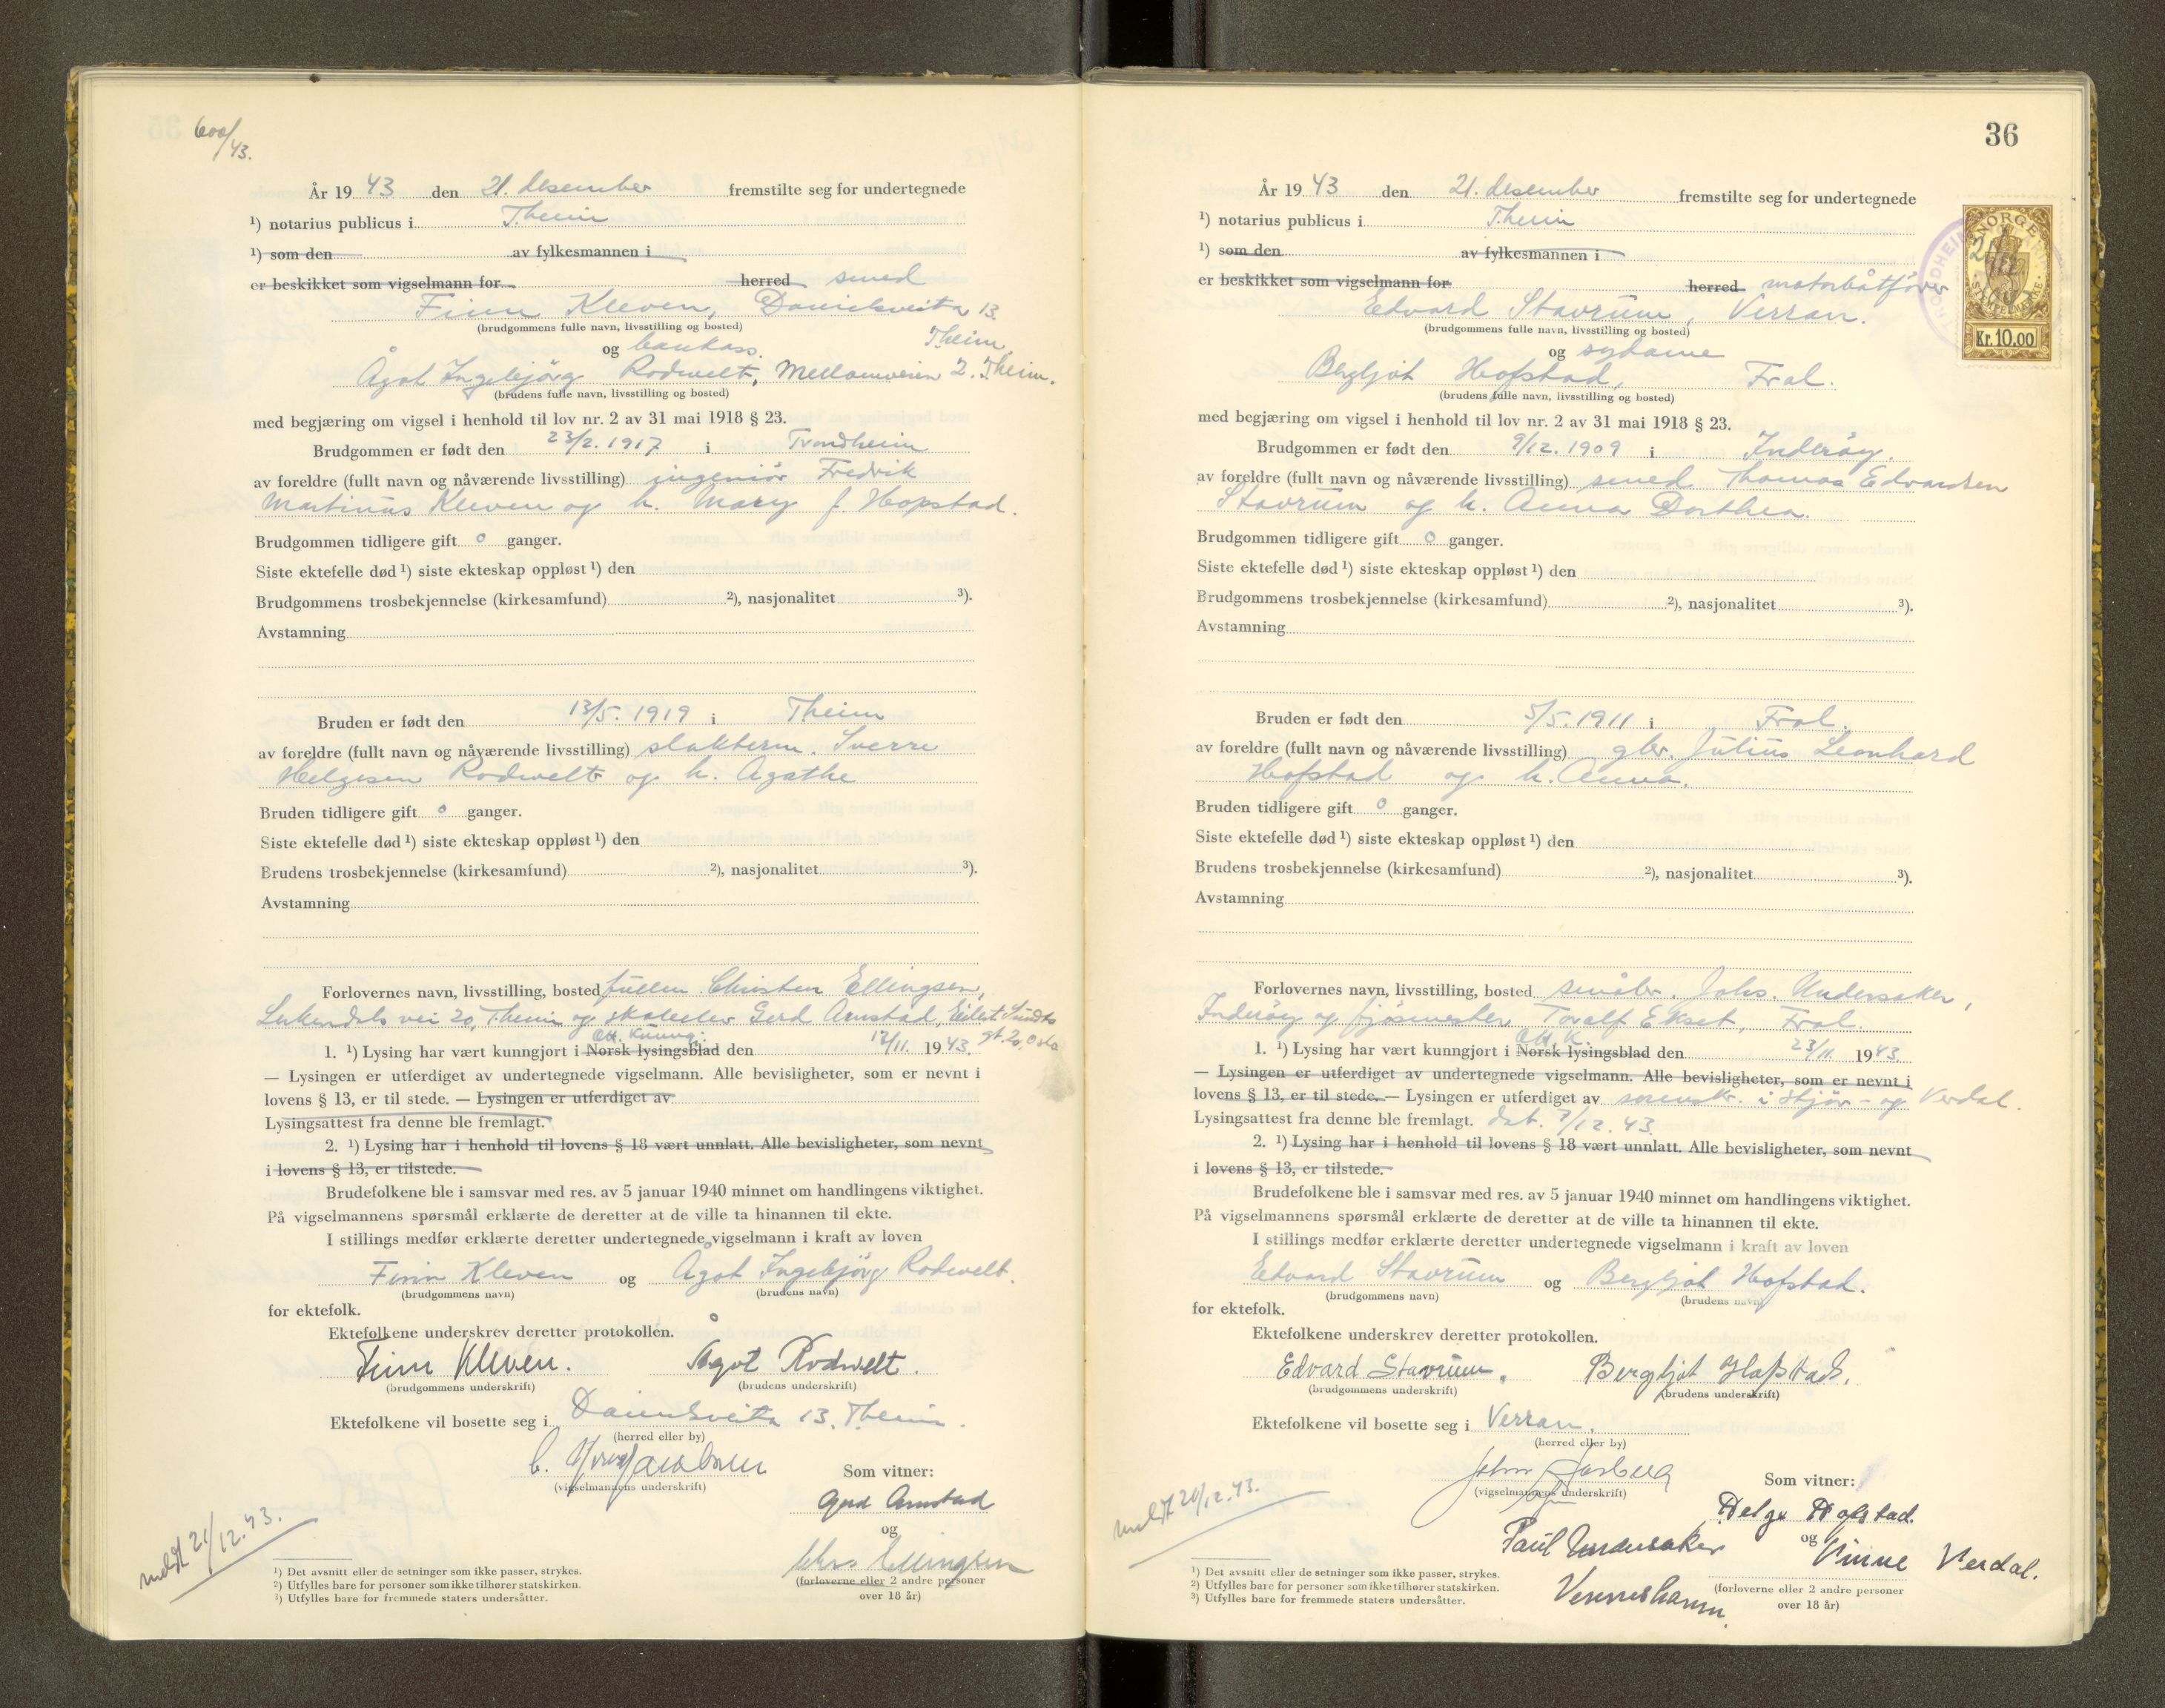 600/43.
År 19 43 den 21. desember fremstilte seg for undertegnede
¹) notarius publicus i Theim
¹) som den av fylkesmannen i
er beskikket som vigselmann for herred smed
Finn Kleven, Danielsveita 13.
(brudgommens fulle navn, livsstilling og bosted) Theim
og bankass.
Ågot Ingebjörg Rodwelt, Mellomveien 2. Theim.
(brudens fulle navn, livsstilling og bosted)
med begjæring om vigsel i henhold til lov nr. 2 av 31 mai 1918 § 23.
Brudgommen er født den 23/2. 1917 i Trondheim
av foreldre (fullt navn og nåværende livsstilling) ingeniör Fredrik
Martinus Kleven og h. Mary f. Hopstad.
Brudgommen tidligere gift 0 ganger.
Siste ektefelle død ¹) siste ekteskap oppløst ¹) den
Brudgommens trosbekjennelse (kirkesamfund) ²), nasjonalitet ³).
Avstamning
Bruden er født den 13/5. 1919 i Theim
av foreldre (fullt navn og nåværende livsstilling) slakterm. Sverre
Helgesen Rodwelt og h. Agathe
Bruden tidligere gift 0 ganger.
Siste ektefelle død ¹) siste ekteskap oppløst ¹) den
Brudens trosbekjennelse (kirkesamfund) ²), nasjonalitet ³).
Avstamning
Forlovernes navn, livsstilling, bosted Christen Ellingsen,
Lerkendals vei 20, Theim og Gerd Arnstad, Eilert Sundts
gt. 20. Oslo
Off. Kunng.
1. ¹) Lysing har vært kunngjort i Norsk lysingsblad den 17/11. 1943.
— Lysingen er utferdiget av undertegnede vigselmann. Alle bevisligheter, som er nevnt i
lovens § 13, er til stede. — Lysingen er utferdiget av
Lysingsattest fra denne ble fremlagt.
2. ¹) Lysing har i henhold til lovens § 18 vært unnlatt. Alle bevisligheter, som nevnt
i lovens § 13, er tilstede.
Brudefolkene ble i samsvar med res. av 5 januar 1940 minnet om handlingens viktighet.
På vigselmannens spørsmål erklærte de deretter at de ville ta hinannen til ekte.
I stillings medfør erklærte deretter undertegnede vigselmann i kraft av loven
Finn Kleven og Ågot Ingebjörg Rodwelt.
(brudgommens navn) (brudens navn)
for ektefolk.
Ektefolkene underskrev deretter protokollen.
Finn Kleven. Ågot Rodwelt.
(brudgommens underskrift) (brudens underskrift)
Ektefolkene vil bosette seg i Danielsveita 13, Theim.
(herred eller by)
(vigselmannens underskrift)
Som vitner:
Gerd Arnstad
og
Chrs Ellingsen
(forloverne eller 2 andre personer
over 18 år)
meldt 21/12.43.
¹) Det avsnitt eller de setninger som ikke passer, strykes.
²) Utfylles bare for personer som ikke tilhører statskirken.
³) Utfylles bare for fremmede staters undersåtter.
36
NORGE
STEMPELMERKE
Kr. 10.00
År 19 43 den 21. desember fremstilte seg for undertegnede
¹) notarius publicus i Theim
¹) som den av fylkesmannen i
er beskikket som vigselmann for herred motorbåtförer
Edvard Stavrum, Verran.
(brudgommens fulle navn, livsstilling og bosted)
og sydame
Bergljot Hofstad, Frol.
(brudens fulle navn, livsstilling og bosted)
med begjæring om vigsel i henhold til lov nr. 2 av 31 mai 1918 § 23.
Brudgommen er født den 9/12. 1909 i Inderöy.
av foreldre (fullt navn og nåværende livsstilling) smed Thomas Edvardsen
Stavrum og h. Anna Dorthea.
Brudgommen tidligere gift 0 ganger.
Siste ektefelle død ¹) siste ekteskap oppløst ¹) den
Brudgommens trosbekjennelse (kirkesamfund) ²), nasjonalitet ³).
Avstamning
Bruden er født den 5/5. 1911 i Frol.
av foreldre (fullt navn og nåværende livsstilling) gbr. Julius Leonhard
Hofstad og h. Anna.
Bruden tidligere gift 0 ganger.
Siste ektefelle død ¹) siste ekteskap oppløst ¹) den
Brudens trosbekjennelse (kirkesamfund) ²), nasjonalitet ³).
Avstamning
Forlovernes navn, livsstilling, bosted småbr. Johs. Undersaker,
Inderöy og fjösmester Toralf Ekset, Frol.
Off. K.
1. ¹) Lysing har vært kunngjort i Norsk lysingsblad den 23/11 1943
— Lysingen er utferdiget av undertegnede vigselmann. Alle bevisligheter, som er nevnt i
lovens § 13, er til stede. — Lysingen er utferdiget av sorenskr. i Stjør- og Verdal.
Lysingsattest fra denne ble fremlagt. dat. 7/12. 43.
2. ¹) Lysing har i henhold til lovens § 18 vært unnlatt. Alle bevisligheter, som nevnt
i lovens § 13, er tilstede.
Brudefolkene ble i samsvar med res. av 5 januar 1940 minnet om handlingens viktighet.
På vigselmannens spørsmål erklærte de deretter at de ville ta hinannen til ekte.
I stillings medfør erklærte deretter undertegnede vigselmann i kraft av loven
Edvard Stavrum og Bergljot Hofstad.
(brudgommens navn) (brudens navn)
for ektefolk.
Ektefolkene underskrev deretter protokollen.
Edvard Stavrum. Bergljot Hofstad.
(brudgommens underskrift) (brudens underskrift)
Ektefolkene vil bosette seg i Verran.
(herred eller by)
(vigselmannens underskrift)
Som vitner:
Helge Hofstad.
og Vinne Verdal.
Paul Undersaker
Venneshamn.
(forloverne eller 2 andre personer
over 18 år)
meldt 21/12.43.
¹) Det avsnitt eller de setninger som ikke passer, strykes.
²) Utfylles bare for personer som ikke tilhører statskirken.
³) Utfylles bare for fremmede staters undersåtter.